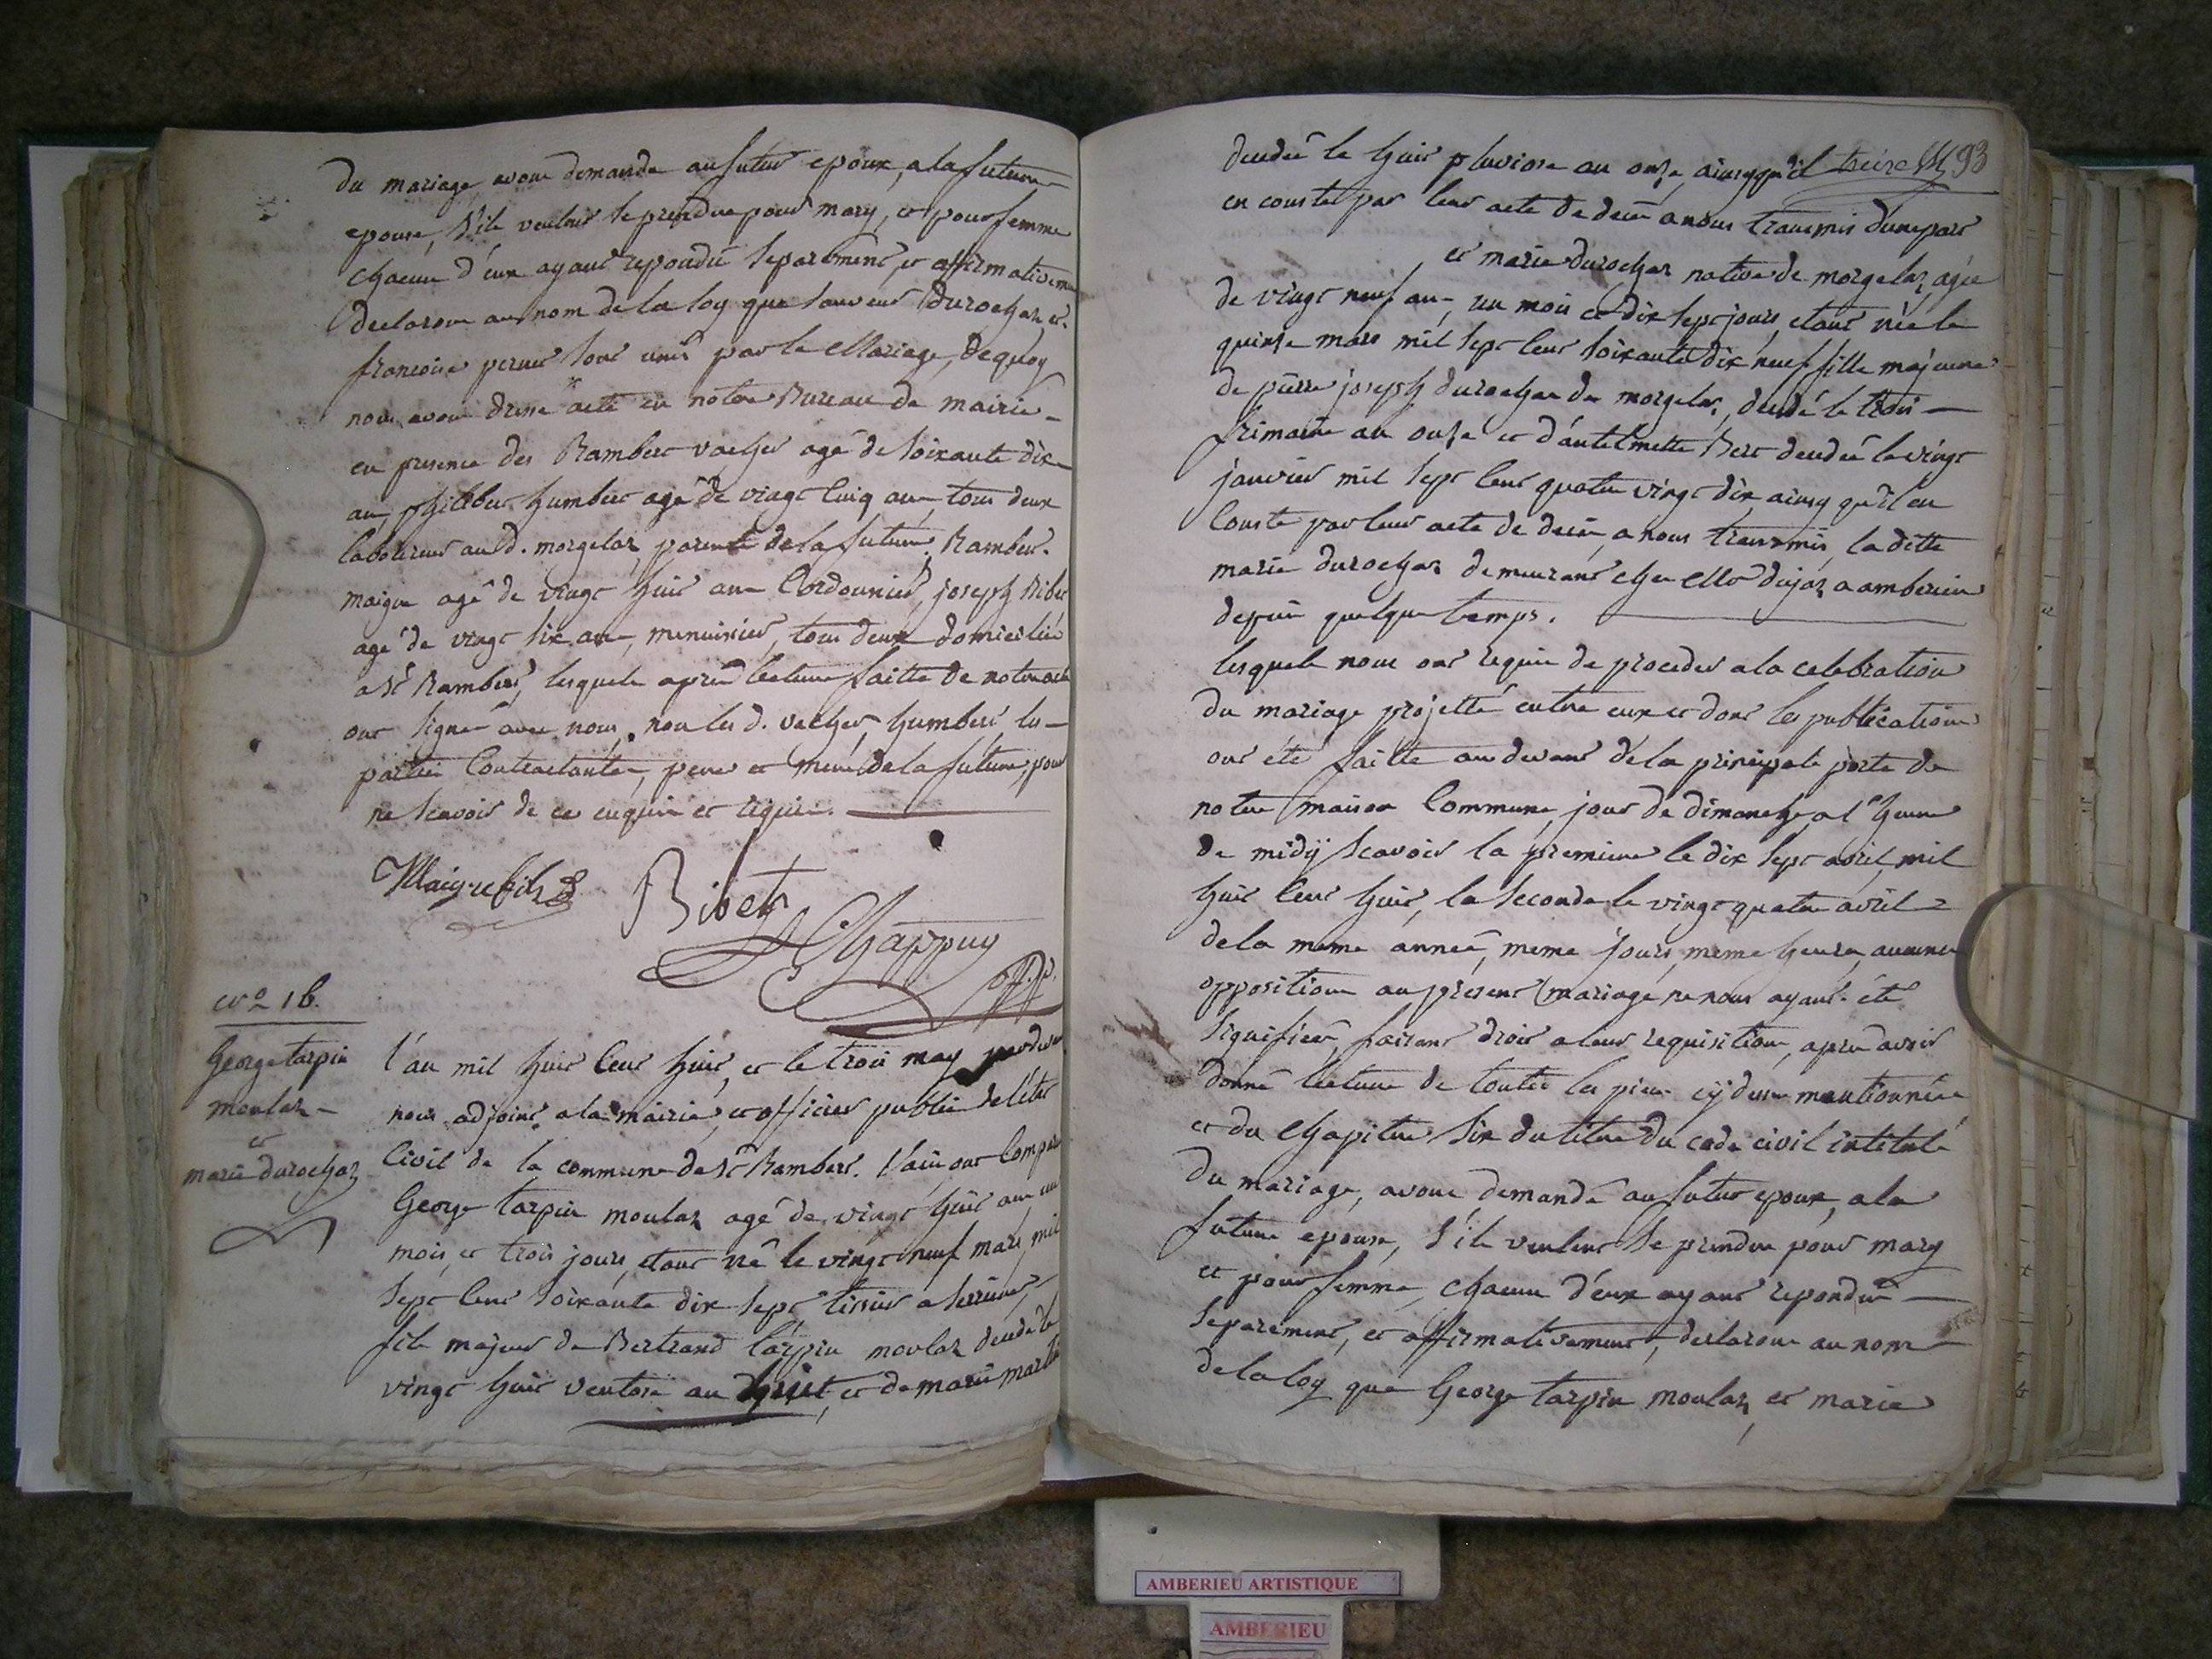 du mariage, avons demandé au futur epoux, a la future
epouse, s'ils veulent se prendre pour mary, et pour femme
chacun d'eux ayant repondu separement, et affirmativement
declarons au nom de la loy que sauveur durochat et
francoise pernet sont unis par le Mariage, de quoy
nous avons dressé acte en notre Bureau de mairie
en presence des Rambert vacher agé de soixante dix
ans, philibert humbert agé de vingt cinq ans, tous deux
laboureurs aud. morgelas, parents de la future. Rambert
maigre agé de vingt huit ans Cordonnier, joseph Ribet
agé de vingt six ans, menuisier, tous deux domiciliés
a st Rambert, lesquels aprés lecture faitte de notre acte
ont signé avec nous, non les d. vacher, humbert les
parties Contractantes, pere et mere de la future, pour
ne scavoir de ce enquis et requis.
Maigre fils
Ribet
Chappuy
No 16.
George tarpin
moulaz
et
marie durochaz
l'an mil huit cent huit, et le trois may pardevant
nous adjoint a la mairie, et officier public de l'état
Civil de la commune de st Rambert. l'ain, ont Comparu
George tarpin moulaz agé de vingt huit ans un
mois, et trois jours, etant né le vingt neuf mars, mil
sept cent soixante dix sept, tissier a serriere,
fils majeur de Bertrand tarpin moulaz decedé le
vingt huit ventose an huit, et de marie martin
treize 93
decedée le huit pluviose an onze, ainsy qu'il
en conste par leur acte de deces a nous transmis d'une part
et marie durochaz native de morgelaz, agée
de vingt neuf ans, un mois et dix sept jours, etant née le
quinze mars mil sept cent soixante dix neuf fille majeure
de pierre joseph durochaz de morgelas, decedé le trois
frimaire an onze et d'antelmette Bert decedée le vingt
janvier mil sept cent quatre vingt dix, ainsy qu'il en
Conste par leur acte de deces, a nous transmis, la ditte
marie durochaz demeurant chez Mr dujaz a amberieu
depuis quelque temps.
lesquels nous ont requis de proceder a la celebration
du mariage projetté entre eux et dont les publications
ont été faitte au devant de la principale porte de
notre maison Commune, jour de dimanche, a l'heure
de midy scavoir la premiere le dix sept avril, mil
huit cent huit, la seconde le vingt quatre avril
de la meme année, meme jours, meme heure, aucune
opposition au present mariage ne nous ayant été
signifiées, faisant droit a leur requisition, aprés avoir
donné lecture de toutes les pieces cy dessus mentionnées
et du chapitre six du titre du code civil intitulé
du mariage, avons demandé au futur epoux, a la
future epouse, s'ils veulent se prendre pour mary
et pour femme, chacun d'eux ayant repondu
separement, et affirmativement, declarons au nom
de la loy que George tarpin moulaz, et marie
AMBERIEU ARTISTIQUE
AMBERIEU